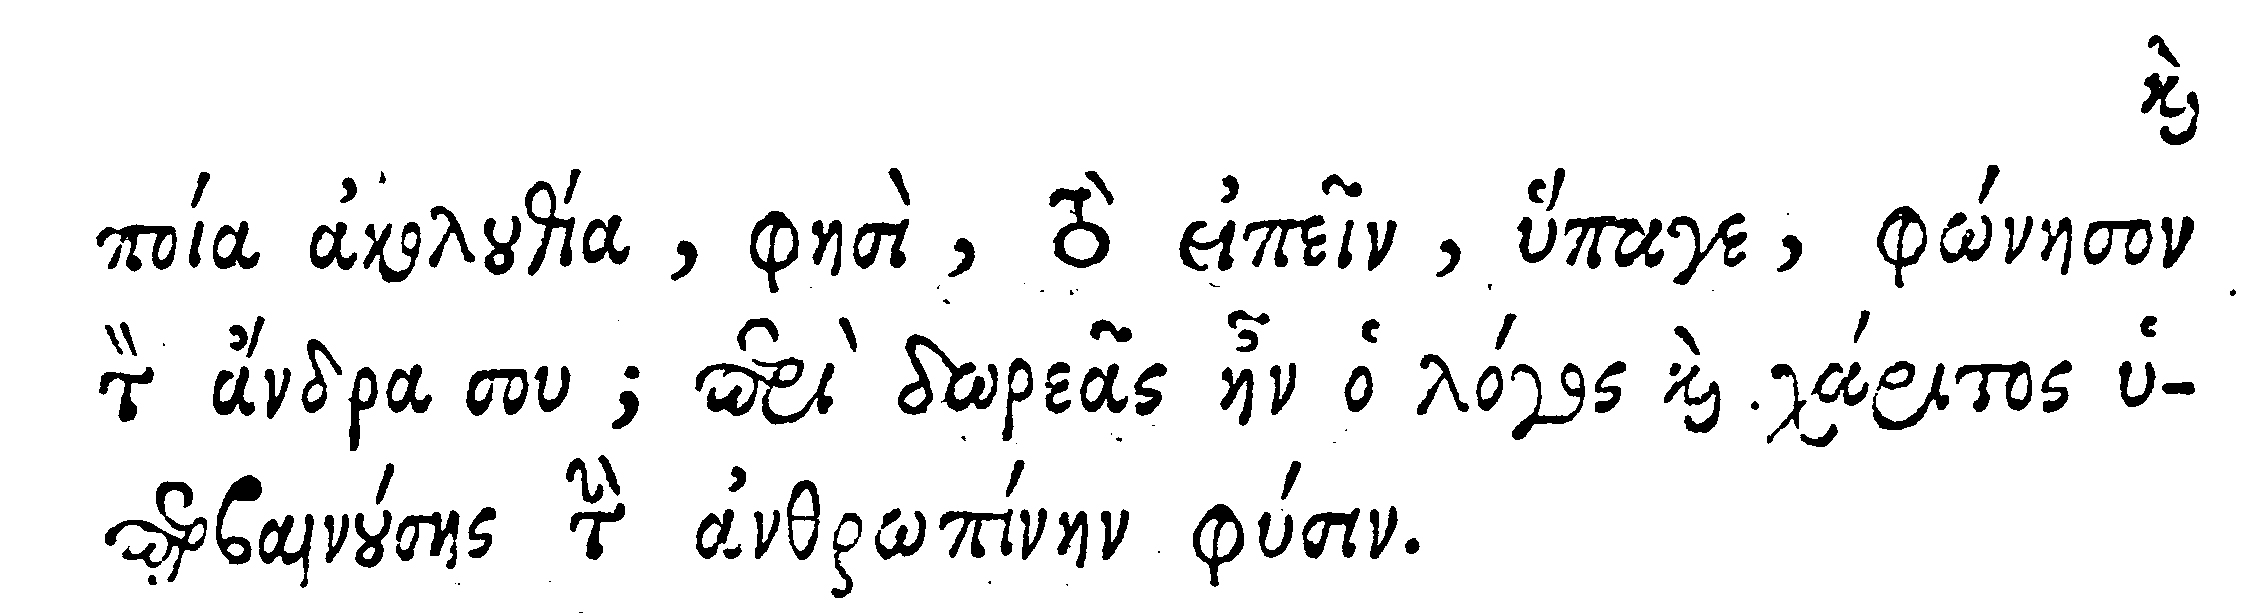 καὶ
ποία ἀκολουθία, φησὶ, τὸ εἰπεῖν, ὕπαγε, φώνησον
τὸν ἄνδρα σου; περὶ δωρεᾶς ἦν ὁ λόγος καὶ χάριτος ὑ-
περβαινούσης τὴν ἀνθρωπίνην φύσιν.